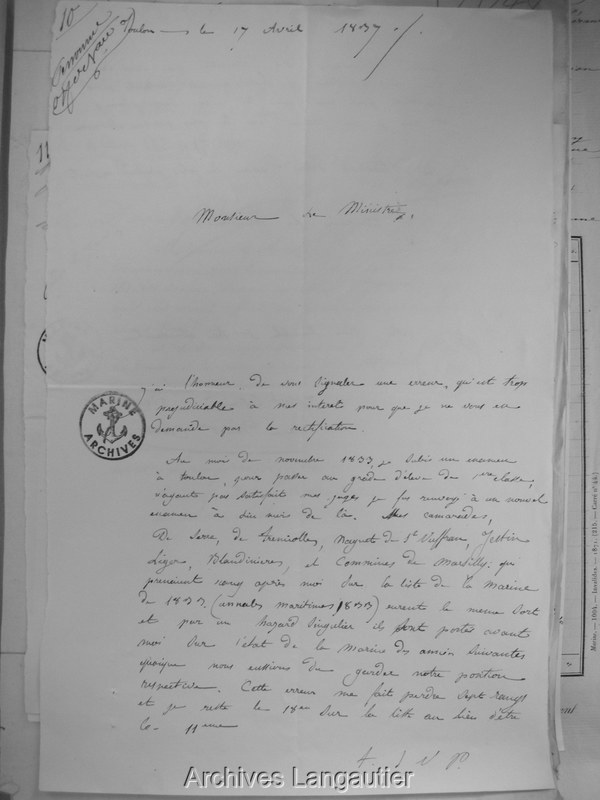 10
Toulon le 17 Avril 1837
Monsieur le Ministre,
MARINE
ARCHIVES
j'ai l'honneur de vous signaler une erreur, qui est trop
préjudiciable à mes interets pour que je ne vous en
demande pas la rectification.
Au mois de novembre 1833, je subis un examen
à toulon, pour passer au grade d'élève de 1ere classe,
n'ayant pas satisfait mes juges je fus renvoyé à un nouvel
examen à six mois de là. Mes camarades,
De Serre, de Tremiolles, de St Suffran, Jestin
Liger, Blandinieres, et Commines de Marsilly, qui
prenaient rang après moi sur la liste de la Marine
de 1833. (annales maritimes 1833) eurent le meme sort
et par un hazard singulier ils sont portés avant
moi sur l'état de la marine des années suivantes
quoique nous eussions du garder notre position
respective. Cette erreur me fait perdre sept rangs
et je reste le 18me sur la liste au lieu d'etre
le 11eme
Marine. — 1604. — Invalides.
Archives Langautier